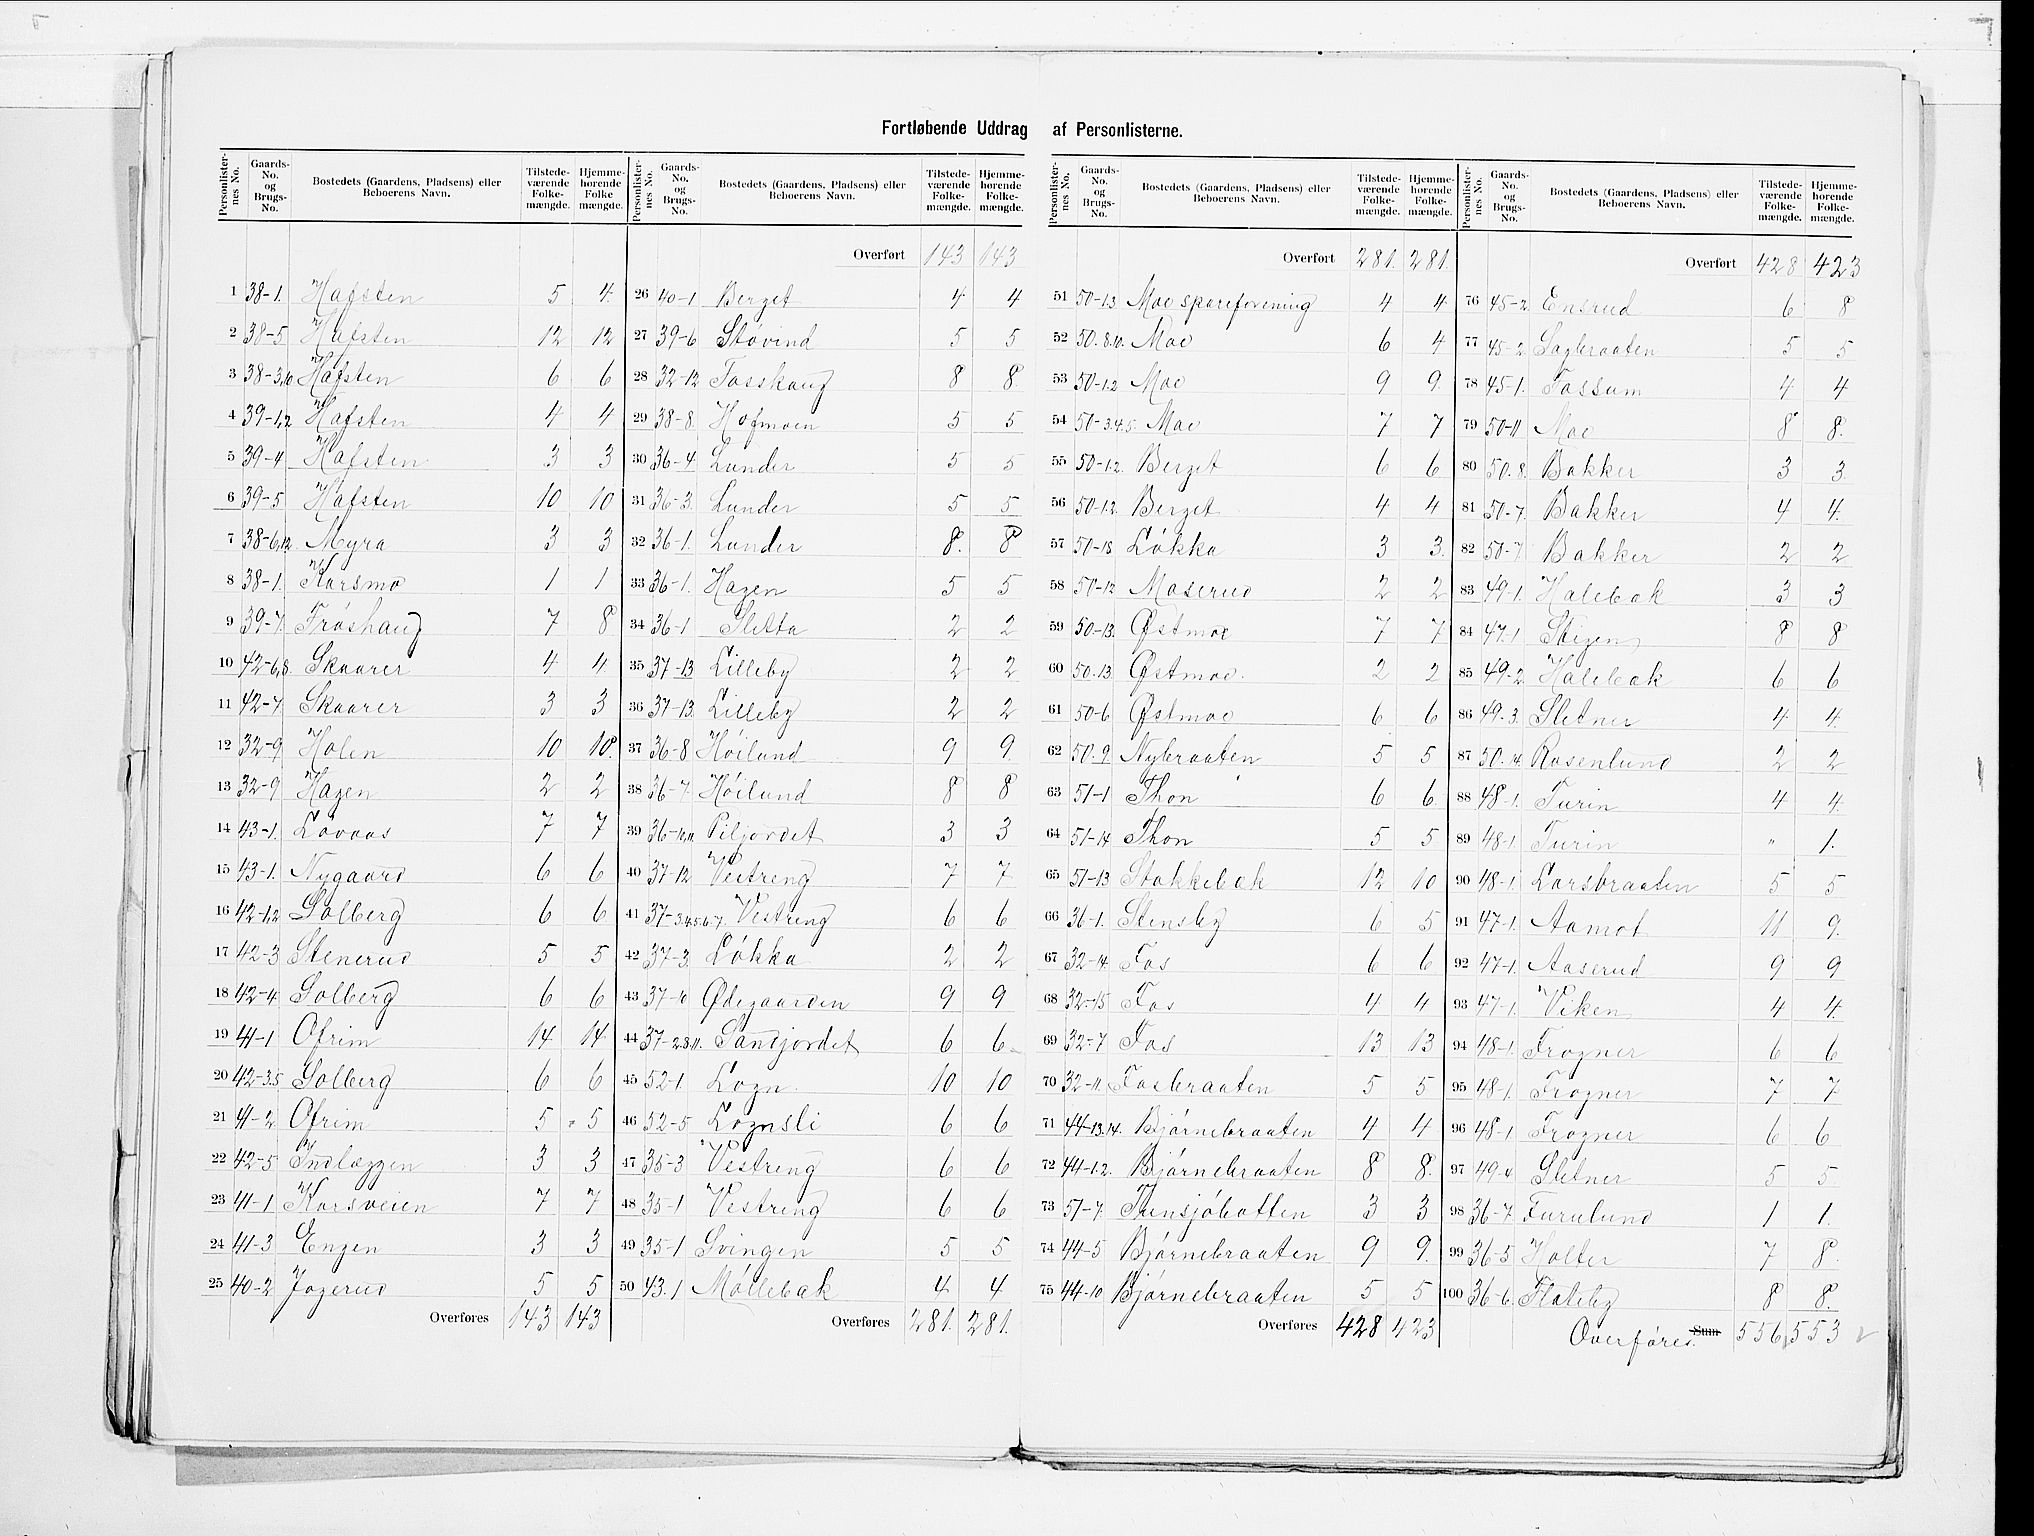 Fortløbende Uddrag af Personlisterne.
Personlisternes No. Gaards-No. og Brugs-No. Bostedets (Gaardens, Pladsens) eller Beboerens Navn. Tilstedeværende Folkemængde. Hjemmehørende Folkemængde.
1 38-1. Hafsten 5 4
2 38-5 Hafsten 12 12
3 38-3,10 Hafsten 6 6
4 39-1,2 Hafsten 4 4
5 39-4 Hafsten 3 3
6 39-5 Hafsten 10 10
7 38-6,12 Myra 3 3
8 38-1. Korsmo 1 1
9 39-7. Frøshaug 7 8
10 42-6,8. Skaarer 4 4
11 42-7 Skaarer 3 3
12 32-9 Holen 10 10
13 32-9 Hagen 2 2
14 43-1. Lovaas 7 7
15 43-1. Nygaard 6 6
16 42-1,2 Solberg 6 6
17 42-3 Stenerud 5 5
18 42-4. Solberg 6 6
19 41-1 Ofrim 14 14
20 42-3.5 Solberg 6 6
21 41-2 Ofrim 5 5
22 42-5 Indlæggen 3 3
23 41-1 Korsveien 7 7
24 41-3 Engen 3 3
25 40-2 Jogerud 5 5
Overføres 143 143
Personlisternes No. Gaards-No. og Brugs-No. Bostedets (Gaardens, Pladsens) eller Beboerens Navn. Tilstedeværende Folkemængde. Hjemmehørende Folkemængde.
Overført 143 143
26 40-1 Berget 4 4
27 39-6 Støvind 5 5
28 32-12 Fosskaug 8 8
29 38-8. Hofmoen 5 5
30 36-4 Lunder 5 5
31 36-3. Lunder 5 5
32 36-1. Lunder 8. 8
33 36-1. Hagen 5 5
34 36-1 Sletta 2 2
35 37-13 Lilleby 2 2
36 37-13. Lilleby 2 2
37 36-8 Høilund 9 9.
38 36-7. Høilund 8 8
39 36-10,11. Piljordet 3 3
40 37-12 Vestreng 7 7
41 37-3.4.5.6.7. Vestreng 6 6
42 37-3. Løkka 2 2
43 37-10 Ødegaarden 9 9
44 37-2.8.11. Sandjordet 6 6
45 52-1. Logn. 10 10
46 52-5 Lognsli 6 6
47 35-3 Vestreng 6 6
48 35-1 Vestreng 6 6
49 35-1 Svingen 5 5
50 43.1 Møllebæk 4 4
Overføres 281. 281.
Personlisternes No. Gaards-No. og Brugs-No. Bostedets (Gaardens, Pladsens) eller Beboerens Navn. Tilstedeværende Folkemængde. Hjemmehørende Folkemængde.
Overført 281. 281.
51 50-13 Moe spareforening 4 4
52 50.8.10. Moe 6 4
53 50-1.2 Moe 9 9.
54 50-3.4.5. Moe 7 7
55 50-1.2. Berget 6 6
56 50-1.2. Berget 4 4
57 50-18 Løkka 3 3.
58 50-12 Moserud 2 2
59 50-13. Østmoe 7 7
60 50.13. Østmoe. 2 2
61 50-6 Østmoe 6 6
62 50.9. Nybraaten 5 5
63 51-1 Thon 6 6
64 51-14 Thon 5 5
65 51-13 Stokkebæk 12 10
66 36-1. Stensby 6 5
67 32-14. Fos 6 6
68 32-15 Fos 4 4
69 32-7 Fos 13 13
70 32-11. Fosbraaten 5 5
71 44-13.14. Bjørnebraaten 4 4
72 44-1.2. Bjørnebraaten 8 8.
73 51-7. Tunsjøbotten 3 3
74 44-5 Bjørnebraaten 9 9.
75 44-10 Bjørnebraaten 5 5
Overføres 428 423
Personlisternes No. Gaards-No. og Brugs-No. Bostedets (Gaardens, Pladsens) eller Beboerens Navn. Tilstedeværende Folkemængde. Hjemmehørende Folkemængde.
Overført 428 423
76 45-2. Ensrud 6 8
77 45-2. Sagbraaten 5 5
78 45-1. Fossum 4 4
79 50-11 Moe 8 8.
80 50.8. Bakker 3 3.
81 50-7. Bakker 4 4.
82 50-7. Bakker 2 2
83 49-1. Halebæk 3 3
84 47-1 Stigen 8 8
85 49-2. Halebæk 6 6
86 49.3. Sletner 4 4.
87 50.14. Rosenlund 2 2
88 48-1. Turin 4 4.
89 48-1. Turin " 1.
90 48-1 Larsbraaten 5 5
91 47-1. Aamot 11 9.
92 47-1. Aaserud 9 9
93 47-1. Viken 4 4.
94 48-1. Frogner 6 6
95 48-1. Frogner 7 7
96 48-1 Frogner 6 6
97 49.4 Sletner 5 5.
98 36-7. Furulund 1 1.
99 36-5 Holter 7 8.
100 36-6. Flateby 8 8.
Overføres. Sum 556 553